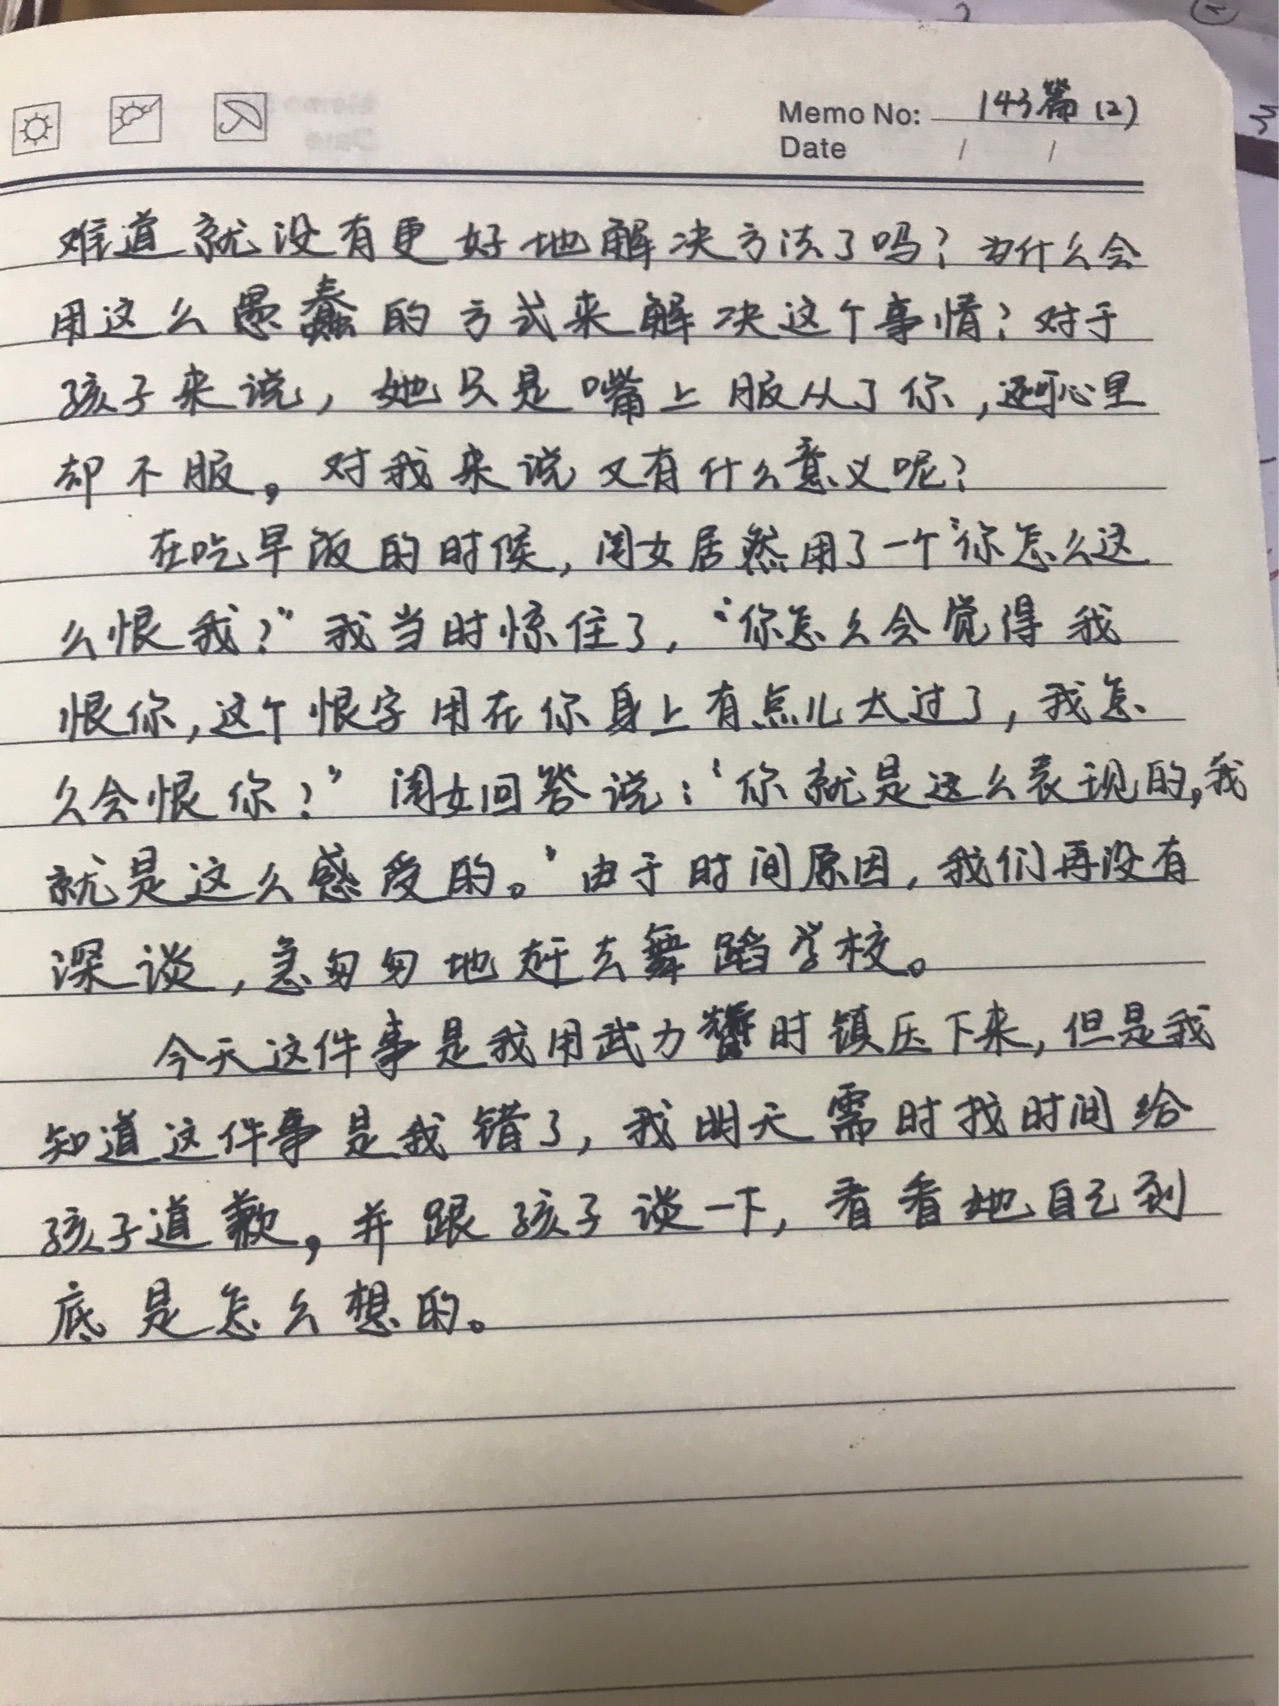 Memo No: 143篇(2)
Date / /
难道就没有更好地解决方法了吗？为什么会
用这么愚蠢的方式来解决这个事情？对于
孩子来说，她只是嘴上服从了你，心里
却不服，对我来说又有什么意义呢？
在吃早饭的时候，闺女居然用了一个“你怎么这
么恨我？”我当时惊住了，“你怎么会觉得我
恨你，这个恨字用在你身上有点儿太过了，我怎
么会恨你？”闺女回答说：“你就是这么表现的，我
就是这么感受的。”由于时间原因，我们再没有
深谈，急匆匆地赶去舞蹈学校。
今天这件事是我用武力时镇压下来，但是我
知道这件事是我错了，我明天需时找时间给
孩子道歉，并跟孩子谈一下，看看她自己到
底是怎么想的。